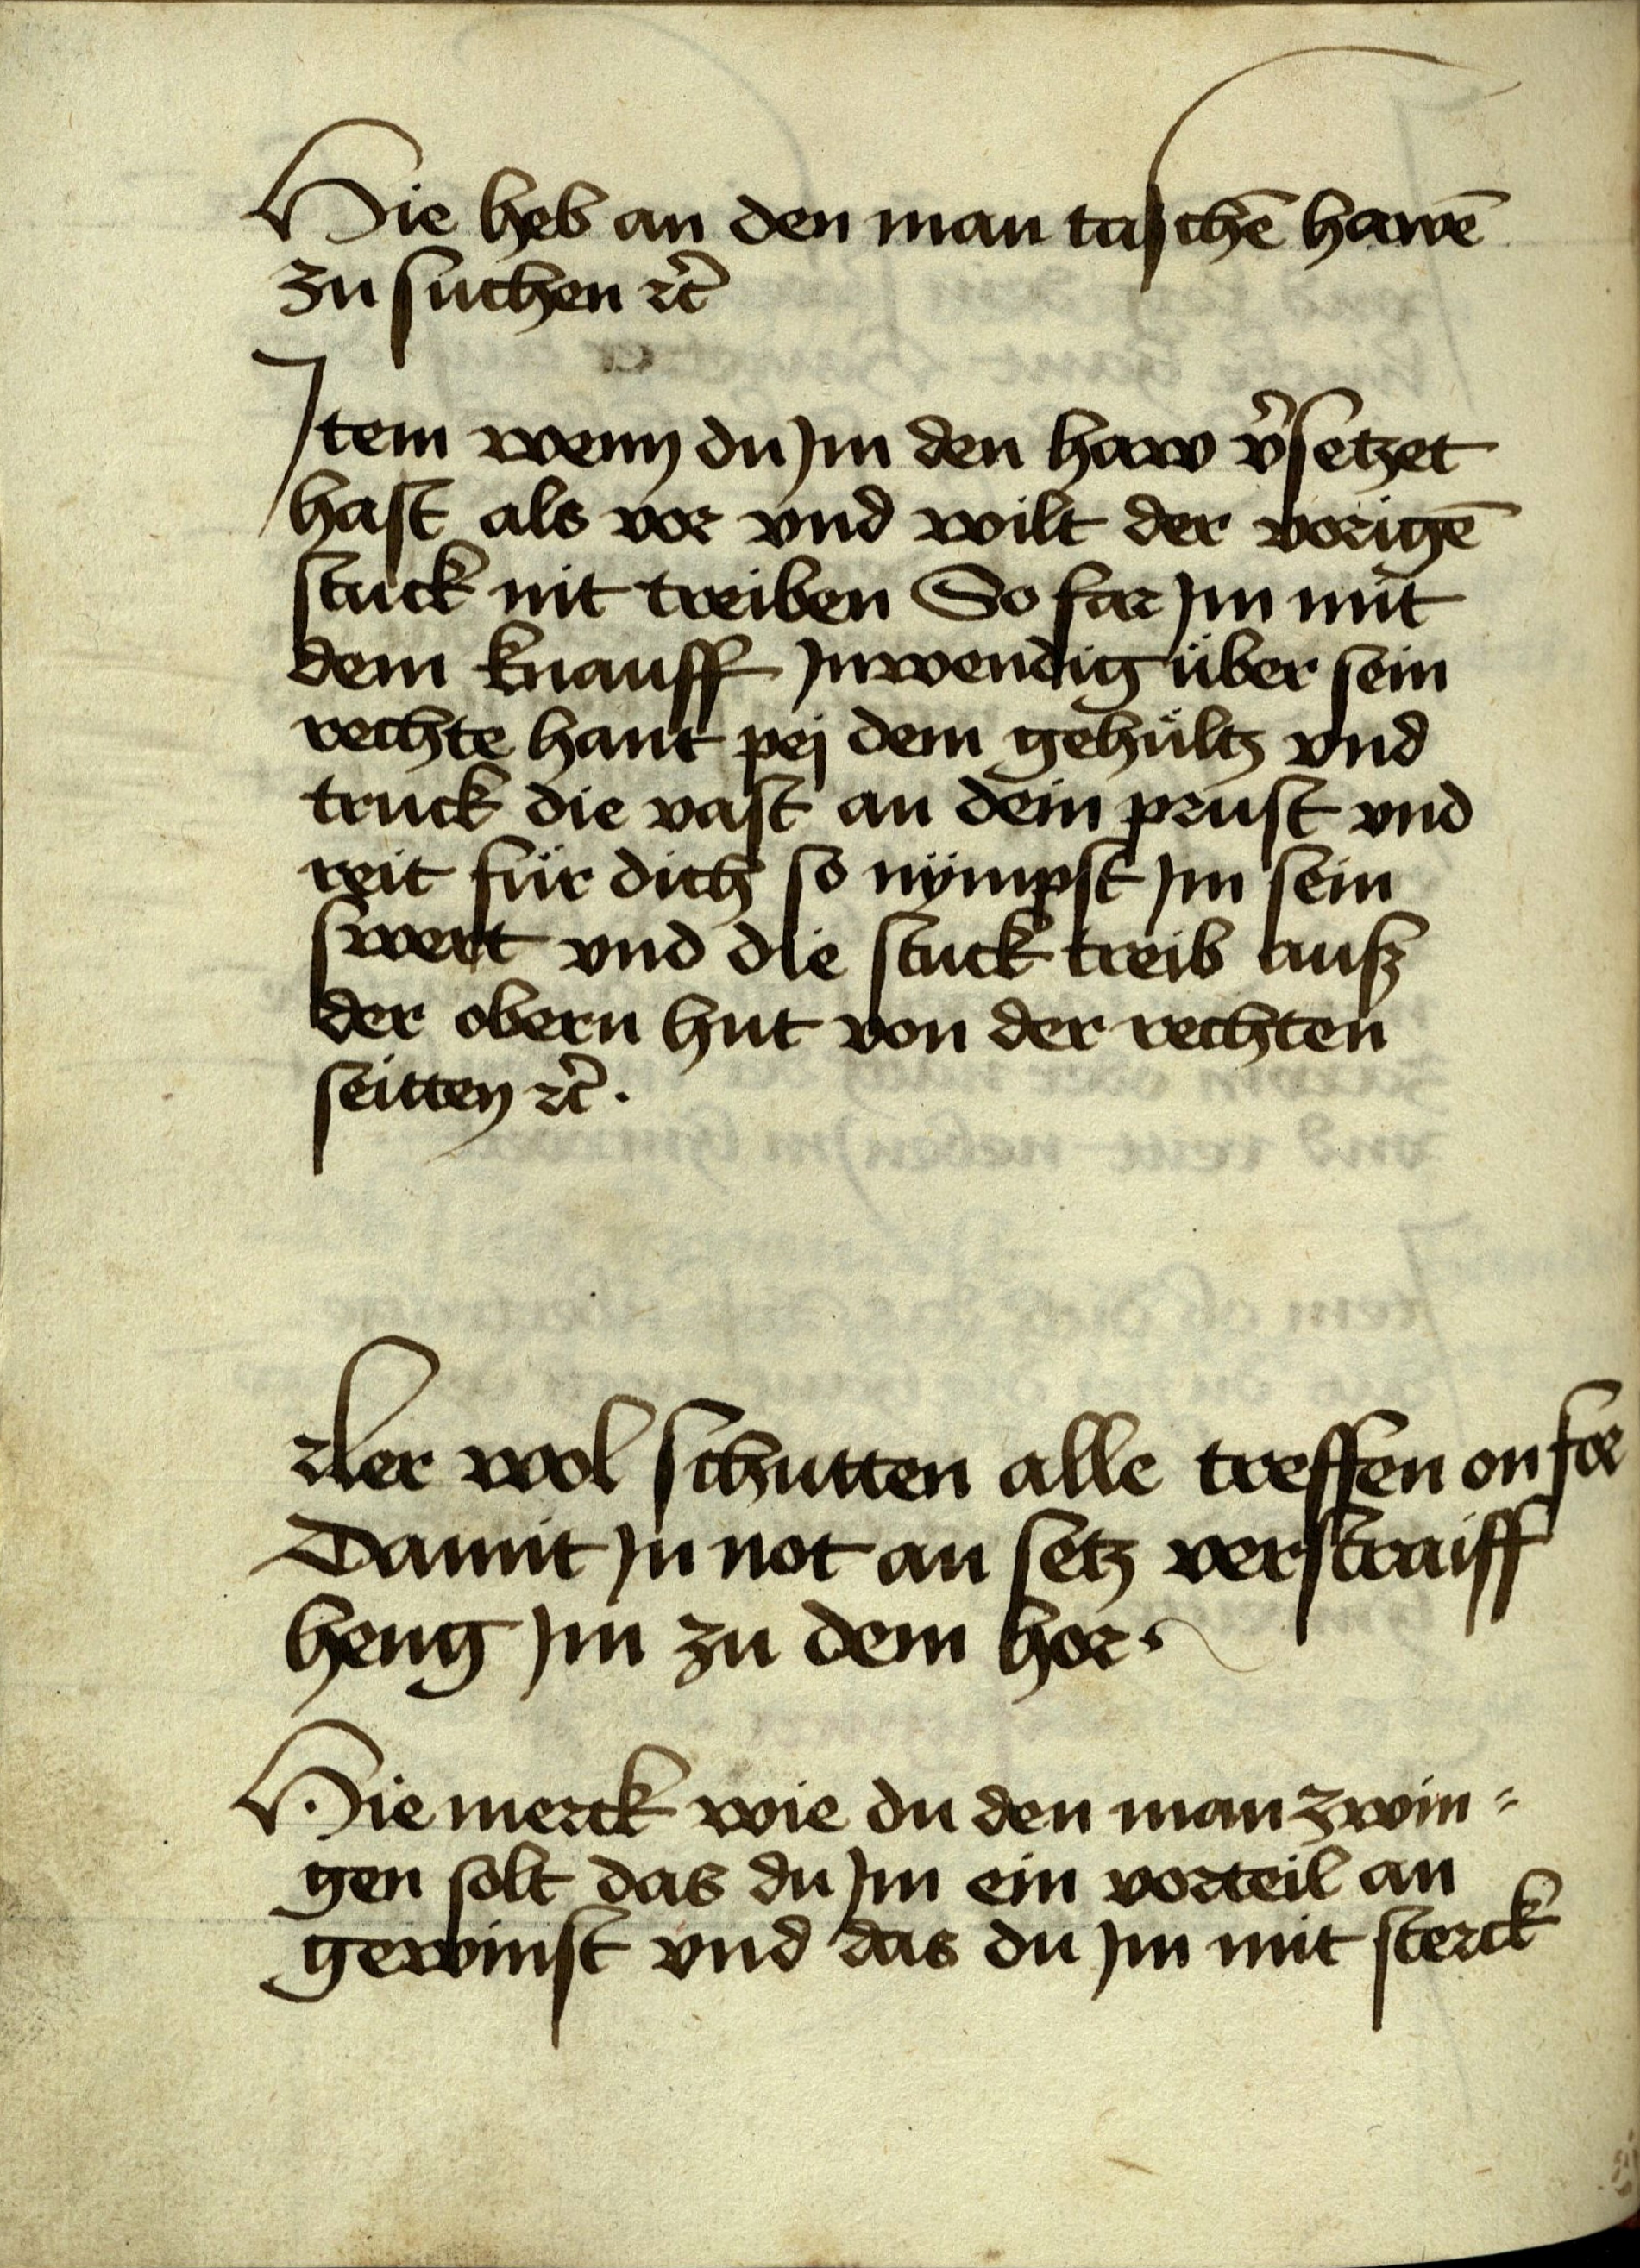 Hie heb an den man taschē hawē
zu suchen ꝛc̃
Item wenn du Im den haw v̾setzet
hast als vor vnd wilt der vorigē
stuck nit treiben So far Im mit
dem knauff Inwendig über sein
rechte hant pej dem gehültz vnd
truck die vast an dein prust vnd
reit für dich so nÿmpst Im sein
swert vnd die stuck treib ausz
der obern hut von der rechten
seitten ꝛc̃.
ler wol schutten alle treffen on for
Damit In not an setz verstraiff
heng Im zu dem hor
Hie merck wie du den man zwin=
gen solt das du Im ein vorteil an
gewinst vnd das du Im mit sterck